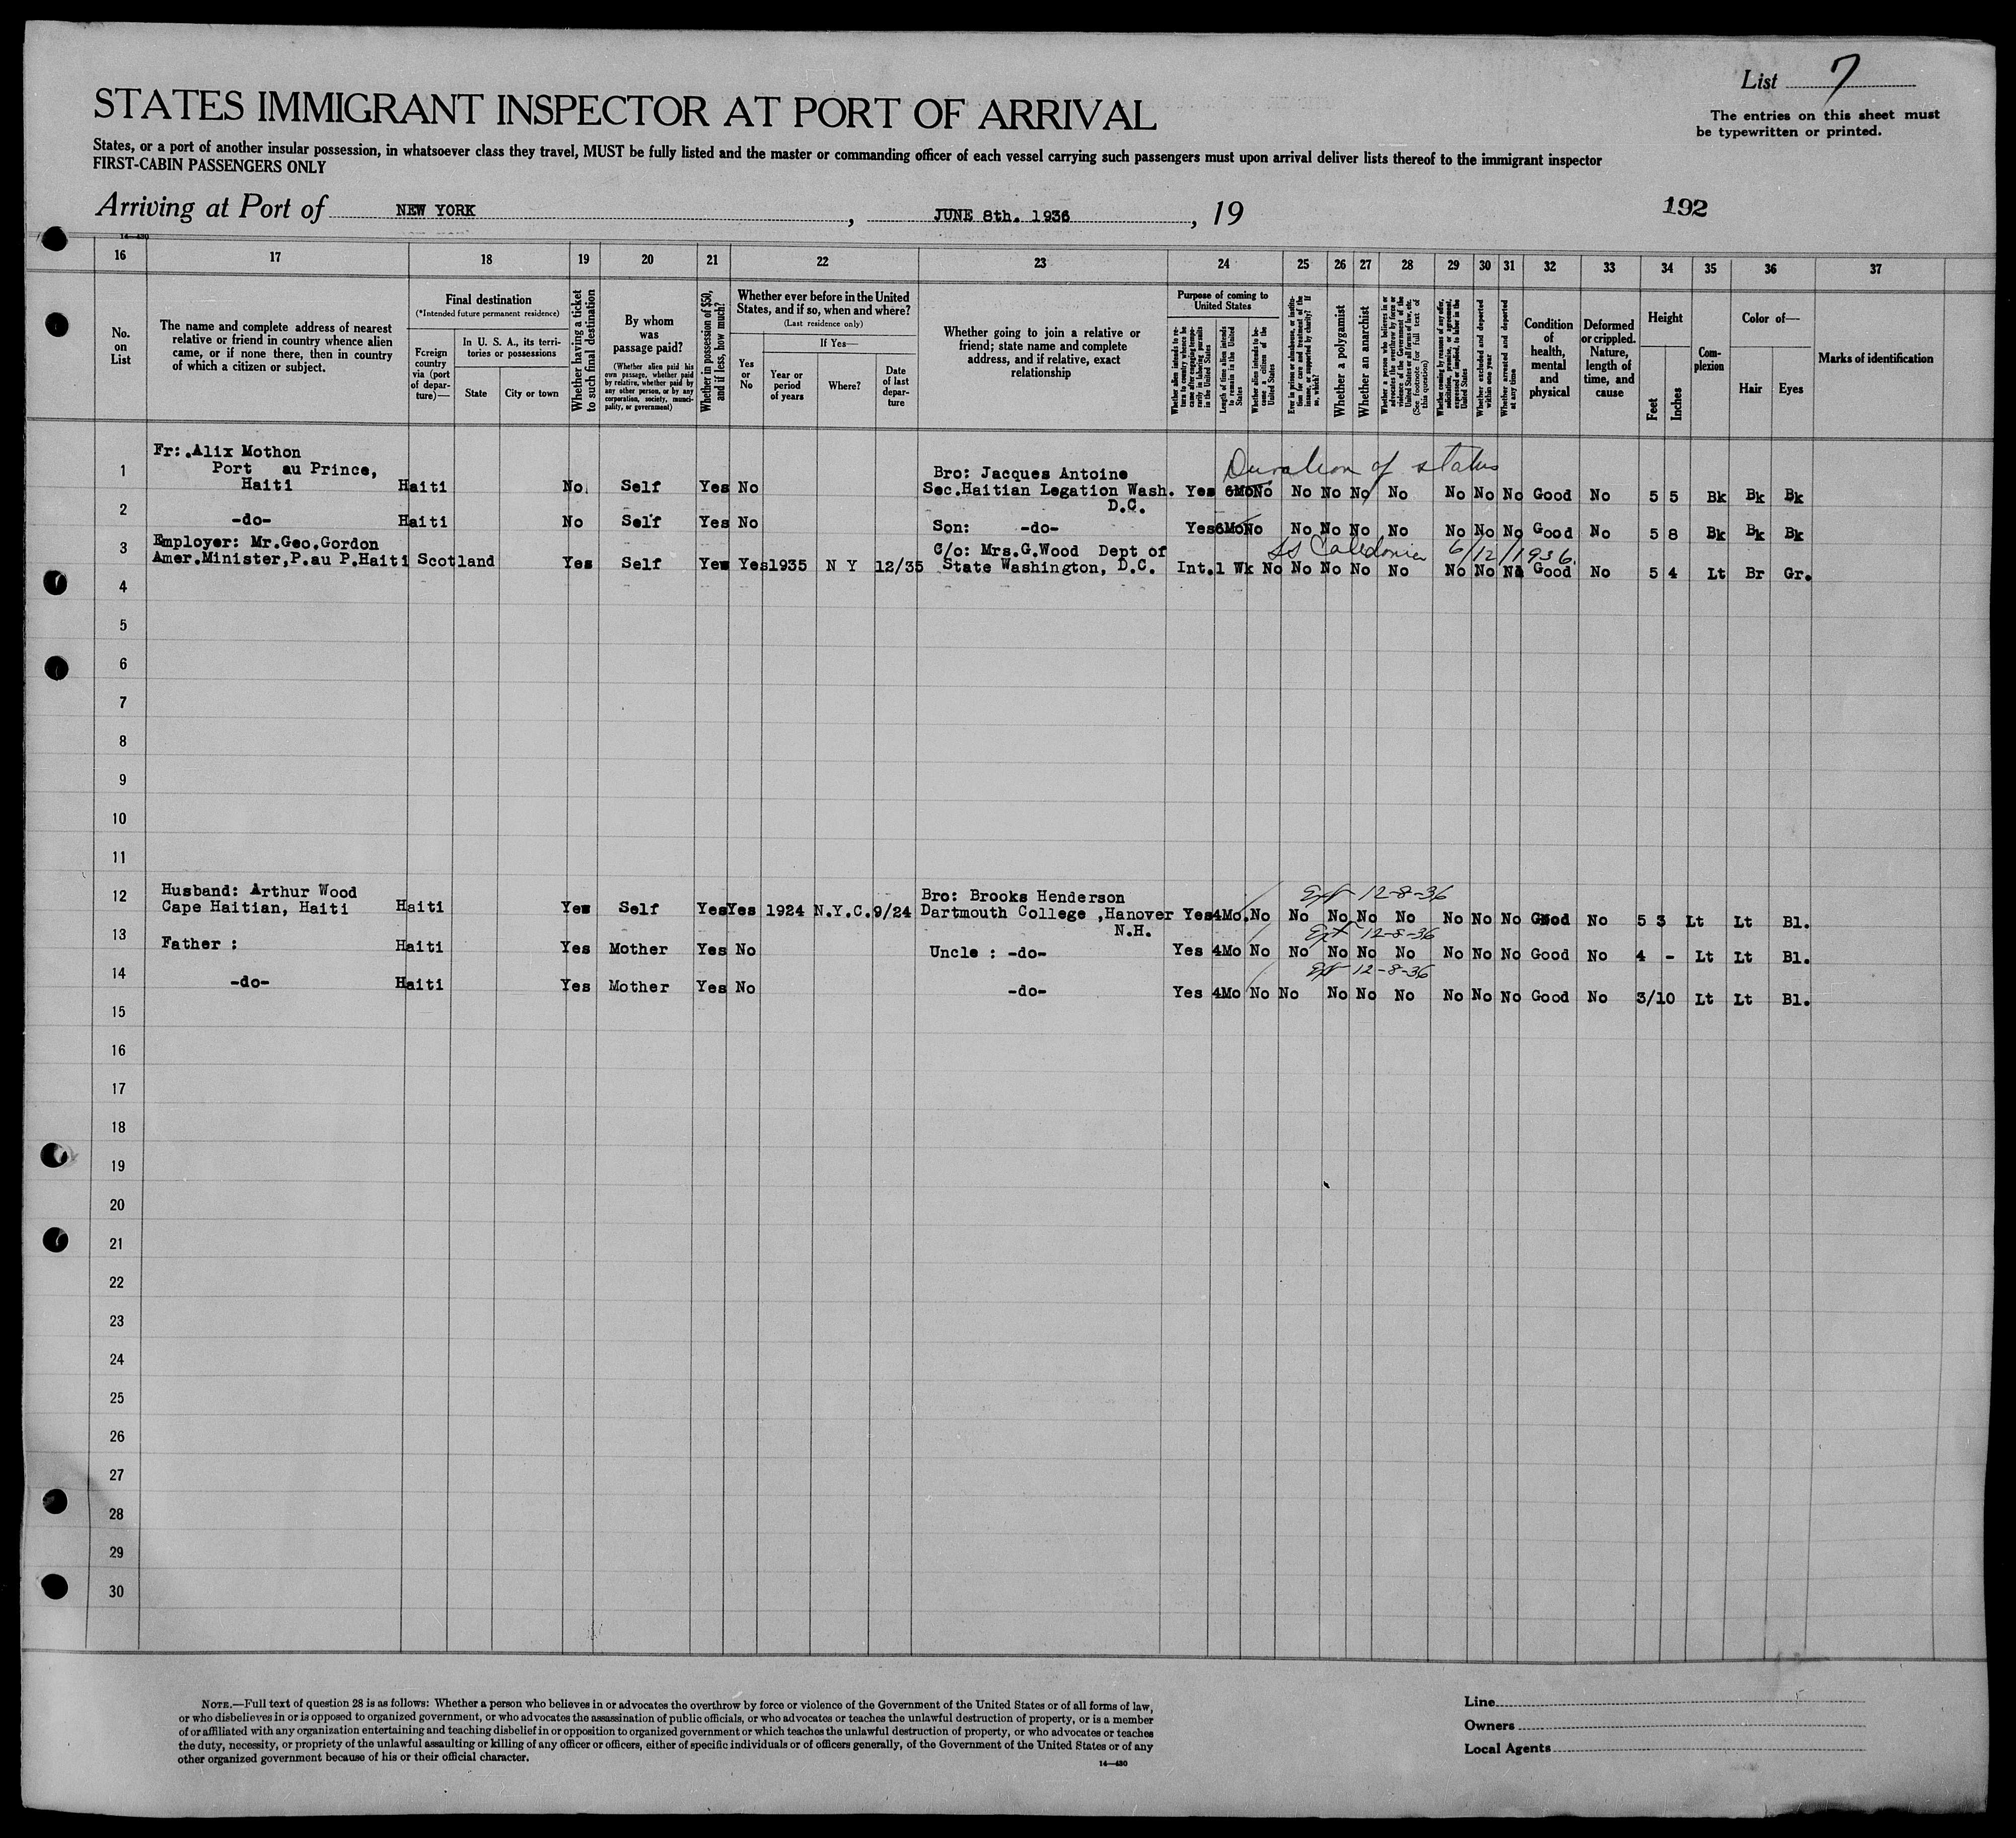 List 7
The entries on this sheet must
be typewritten or printed.
STATES IMMIGRANT INSPECTOR AT PORT OF ARRIVAL
States, or a port of another insular possession, in whatsoever class they travel, MUST be fully listed and the master or commanding officer of each vessel carrying such passengers must upon arrival deliver lists thereof to the immigrant inspector
FIRST-CABIN PASSENGERS ONLY
Arriving at Port of NEW YORK, JUNE 8th. 1936, 19
192
14—430
16 17 18 19 20 21 22 23 24 25 26 27 28 29 30 31 32 33 34 35 36 37
No. on List
The name and complete address of nearest relative or friend in country whence alien came, or if none there, then in country of which a citizen or subject.
Final destination
(*Intended future permanent residence)
Foreign country via (port of departure)—
In U. S. A., its territories or possessions
State
City or town
Whether having a ticket to such final destination
By whom was passage paid?
(Whether alien paid his own passage, whether paid by relative, whether paid by any other person, or by any corporation, society, municipality, or government)
Whether in possession of $50, and if less, how much?
Whether ever before in the United States, and if so, when and where?
(Last residence only)
Yes or No
If Yes—
Year or period of years
Where?
Date of last departure
Whether going to join a relative or friend; state name and complete address, and if relative, exact relationship
Purpose of coming to United States
Whether alien intends to return to country whence he came after engaging temporarily in laboring pursuits in the United States
Length of time alien intends to remain in the United States
Whether alien intends to become a citizen of the United States
Ever in prison or almshouse, or institution for care and treatment of the insane, or supported by charity? If so, which?
Whether a polygamist
Whether an anarchist
Whether a person who believes in or advocates the overthrow by force or violence of the Government of the United States or all forms of law, etc. (See footnote for full text of this question)
Whether coming by reasons of any offer, solicitation, promise, or agreement, expressed or implied, to labor in the United States
Whether excluded and deported within one year
Whether arrested and deported at any time
Condition of health, mental and physical
Deformed or crippled. Nature, length of time, and cause
Height
Feet
Inches
Complexion
Color of—
Hair
Eyes
Marks of identification
Fr: Alix Mothon
Port au Prince,
Duration of status
1 Haiti Haiti No Self Yes No Bro: Jacques Antoine
Sec.Haitian Legation Wash. D.C. Yes 6Mo No No No No No No No No Good No 5 5 Bk Bk Bk
2 -do- Haiti No Self Yes No Son: -do- Yes 6Mo No No No No No No No No Good No 5 8 Bk Bk Bk
SS Caledonia 6/12/1936.
3 Employer: Mr.Geo.Gordon
Amer.Minister,P.au P.Haiti Scotland Yes Self Yes Yes 1935 N Y 12/35 C/o: Mrs.G.Wood Dept of
State Washington, D.C. Int. 1 Wk No No No No No No No No Good No 5 4 Lt Br Gr.
4
5
6
7
8
9
10
11
Ext 12-8-36
12 Husband: Arthur Wood
Cape Haitian, Haiti Haiti Yes Self Yes Yes 1924 N.Y.C. 9/24 Bro: Brooks Henderson
Dartmouth College ,Hanover N.H. Yes 4Mo. No No No No No No No No Good No 5 3 Lt Lt Bl.
Ext 12-8-36
13 Father : Haiti Yes Mother Yes No Uncle : -do- Yes 4Mo No No No No No No No No Good No 4 - Lt Lt Bl.
Ext 12-8-36
14 -do- Haiti Yes Mother Yes No -do- Yes 4Mo No No No No No No No No Good No 3/10 Lt Lt Bl.
15
16
17
18
19
20
21
22
23
24
25
26
27
28
29
30
NOTE.—Full text of question 28 is as follows: Whether a person who believes in or advocates the overthrow by force or violence of the Government of the United States or of all forms of law,
or who disbelieves in or is opposed to organized government, or who advocates the assassination of public officials, or who advocates or teaches the unlawful destruction of property, or is a member
of or affiliated with any organization entertaining and teaching disbelief in or opposition to organized government or which teaches the unlawful destruction of property, or who advocates or teaches
the duty, necessity, or propriety of the unlawful assaulting or killing of any officer or officers, either of specific individuals or of officers generally, of the Government of the United States or of any
other organized government because of his or their official character.
14—430
Line
Owners
Local Agents